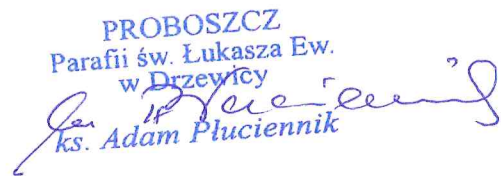 PROBOSZCZ
Parafii św. Łukasza Ew.
w Drzewicy
ks. Adam Płuciennik